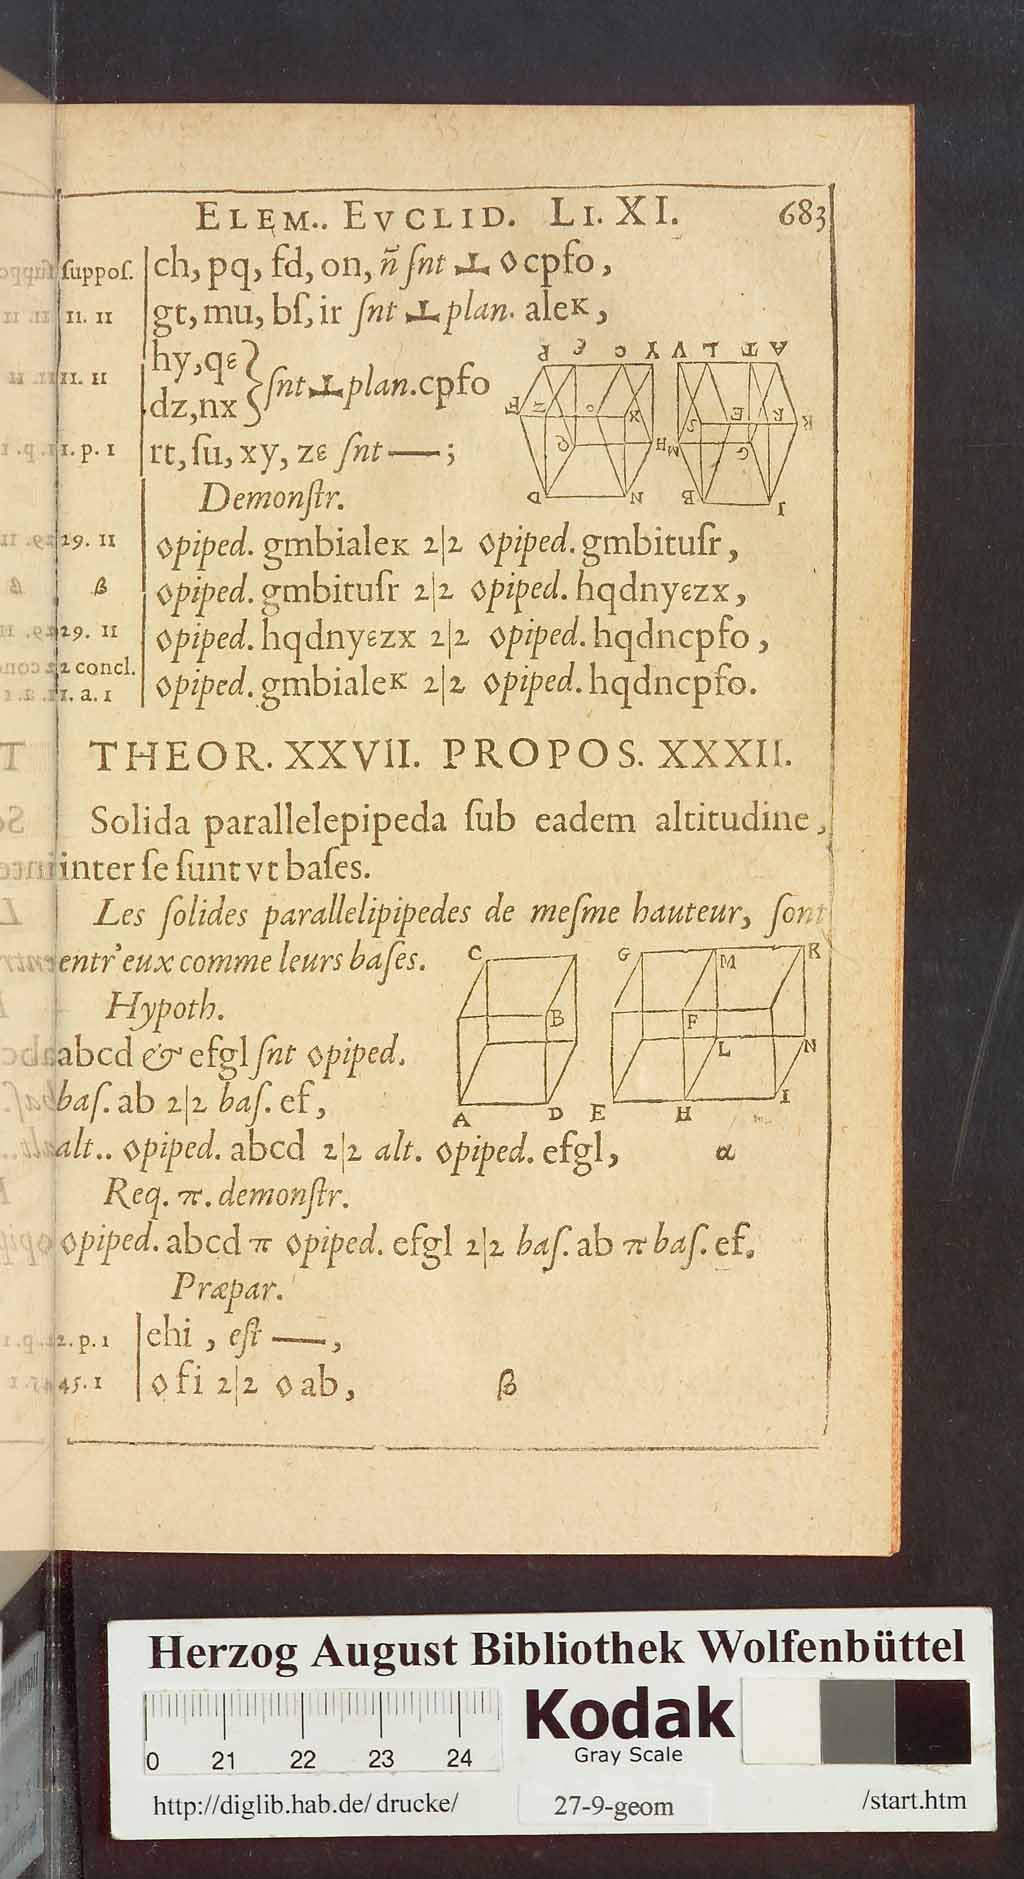 ELEM.. EVCLID. LI. XI. 683
ſuppoſ. ch, pq, fd, on, ñ ſnt ⊥ ◊ cpfo,
11. 11 gt, mu, bſ, ir ſnt ⊥ plan. aleK,
11. 11 hy, qε } dz, nx } ſnt ⊥ plan. cpfo
1. p. 1 rt, ſu, xy, zε ſnt —;
Demonſtr.
29. 11 ◊piped. gmbialeK 2|2 ◊piped. gmbituſr,
β ◊piped. gmbituſr 2|2 ◊piped. hqdnyεzx,
29. 11 ◊piped. hqdnyεzx 2|2 ◊piped. hqdncpfo,
2 concl.
1. a. 1 ◊piped. gmbialeK 2|2 ◊piped. hqdncpfo.
P C Y V L T A
F Z O X S E R K
Q H M G
D N B I
THEOR. XXVII. PROPOS. XXXII.
Solida parallelepipeda ſub eadem altitudine,
inter ſe ſunt vt baſes.
Les ſolides parallelipipedes de meſme hauteur, ſont
entr'eux comme leurs baſes.
Hypoth.
abcd & efgl ſnt ◊piped.
baſ. ab 2|2 baſ. ef,
alt.. ◊piped. abcd 2|2 alt. ◊piped. efgl, α
C G M K
B F
L N
A D E H I
Req. π. demonſtr.
◊piped. abcd π ◊piped. efgl 2|2 baſ. ab π baſ. ef.
Præpar.
2. p. 1 ehi, eſt —,
45. 1 ◊ fi 2|2 ◊ ab, β
Herzog August Bibliothek Wolfenbüttel
Kodak
Gray Scale
0 21 22 23 24
http://diglib.hab.de/drucke/ 27-9-geom /start.htm